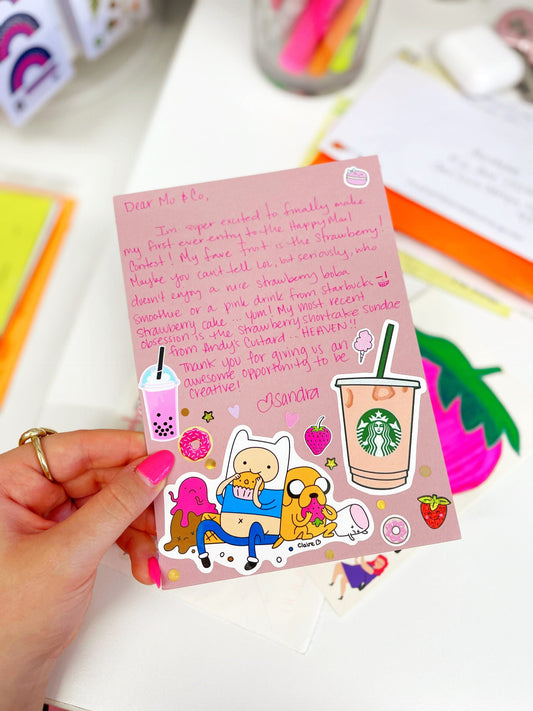 Dear Mo & Co,
I'm super excited to finally make
my first ever entry to the Happy Mail
Contest! My fave fruit is the Strawberry!
Maybe you can't tell LOL, but seriously, who
doesn't enjoy a nice strawberry boba
smoothie or a pink drink from starbucks
Strawberry cake... yum! My most recent
obsession is the strawberry shortcake sundae
from Andy's Custard... HEAVEN!!
Thank you for giving us an
awesome opportunity to be
creative!
Sandra
Claire B